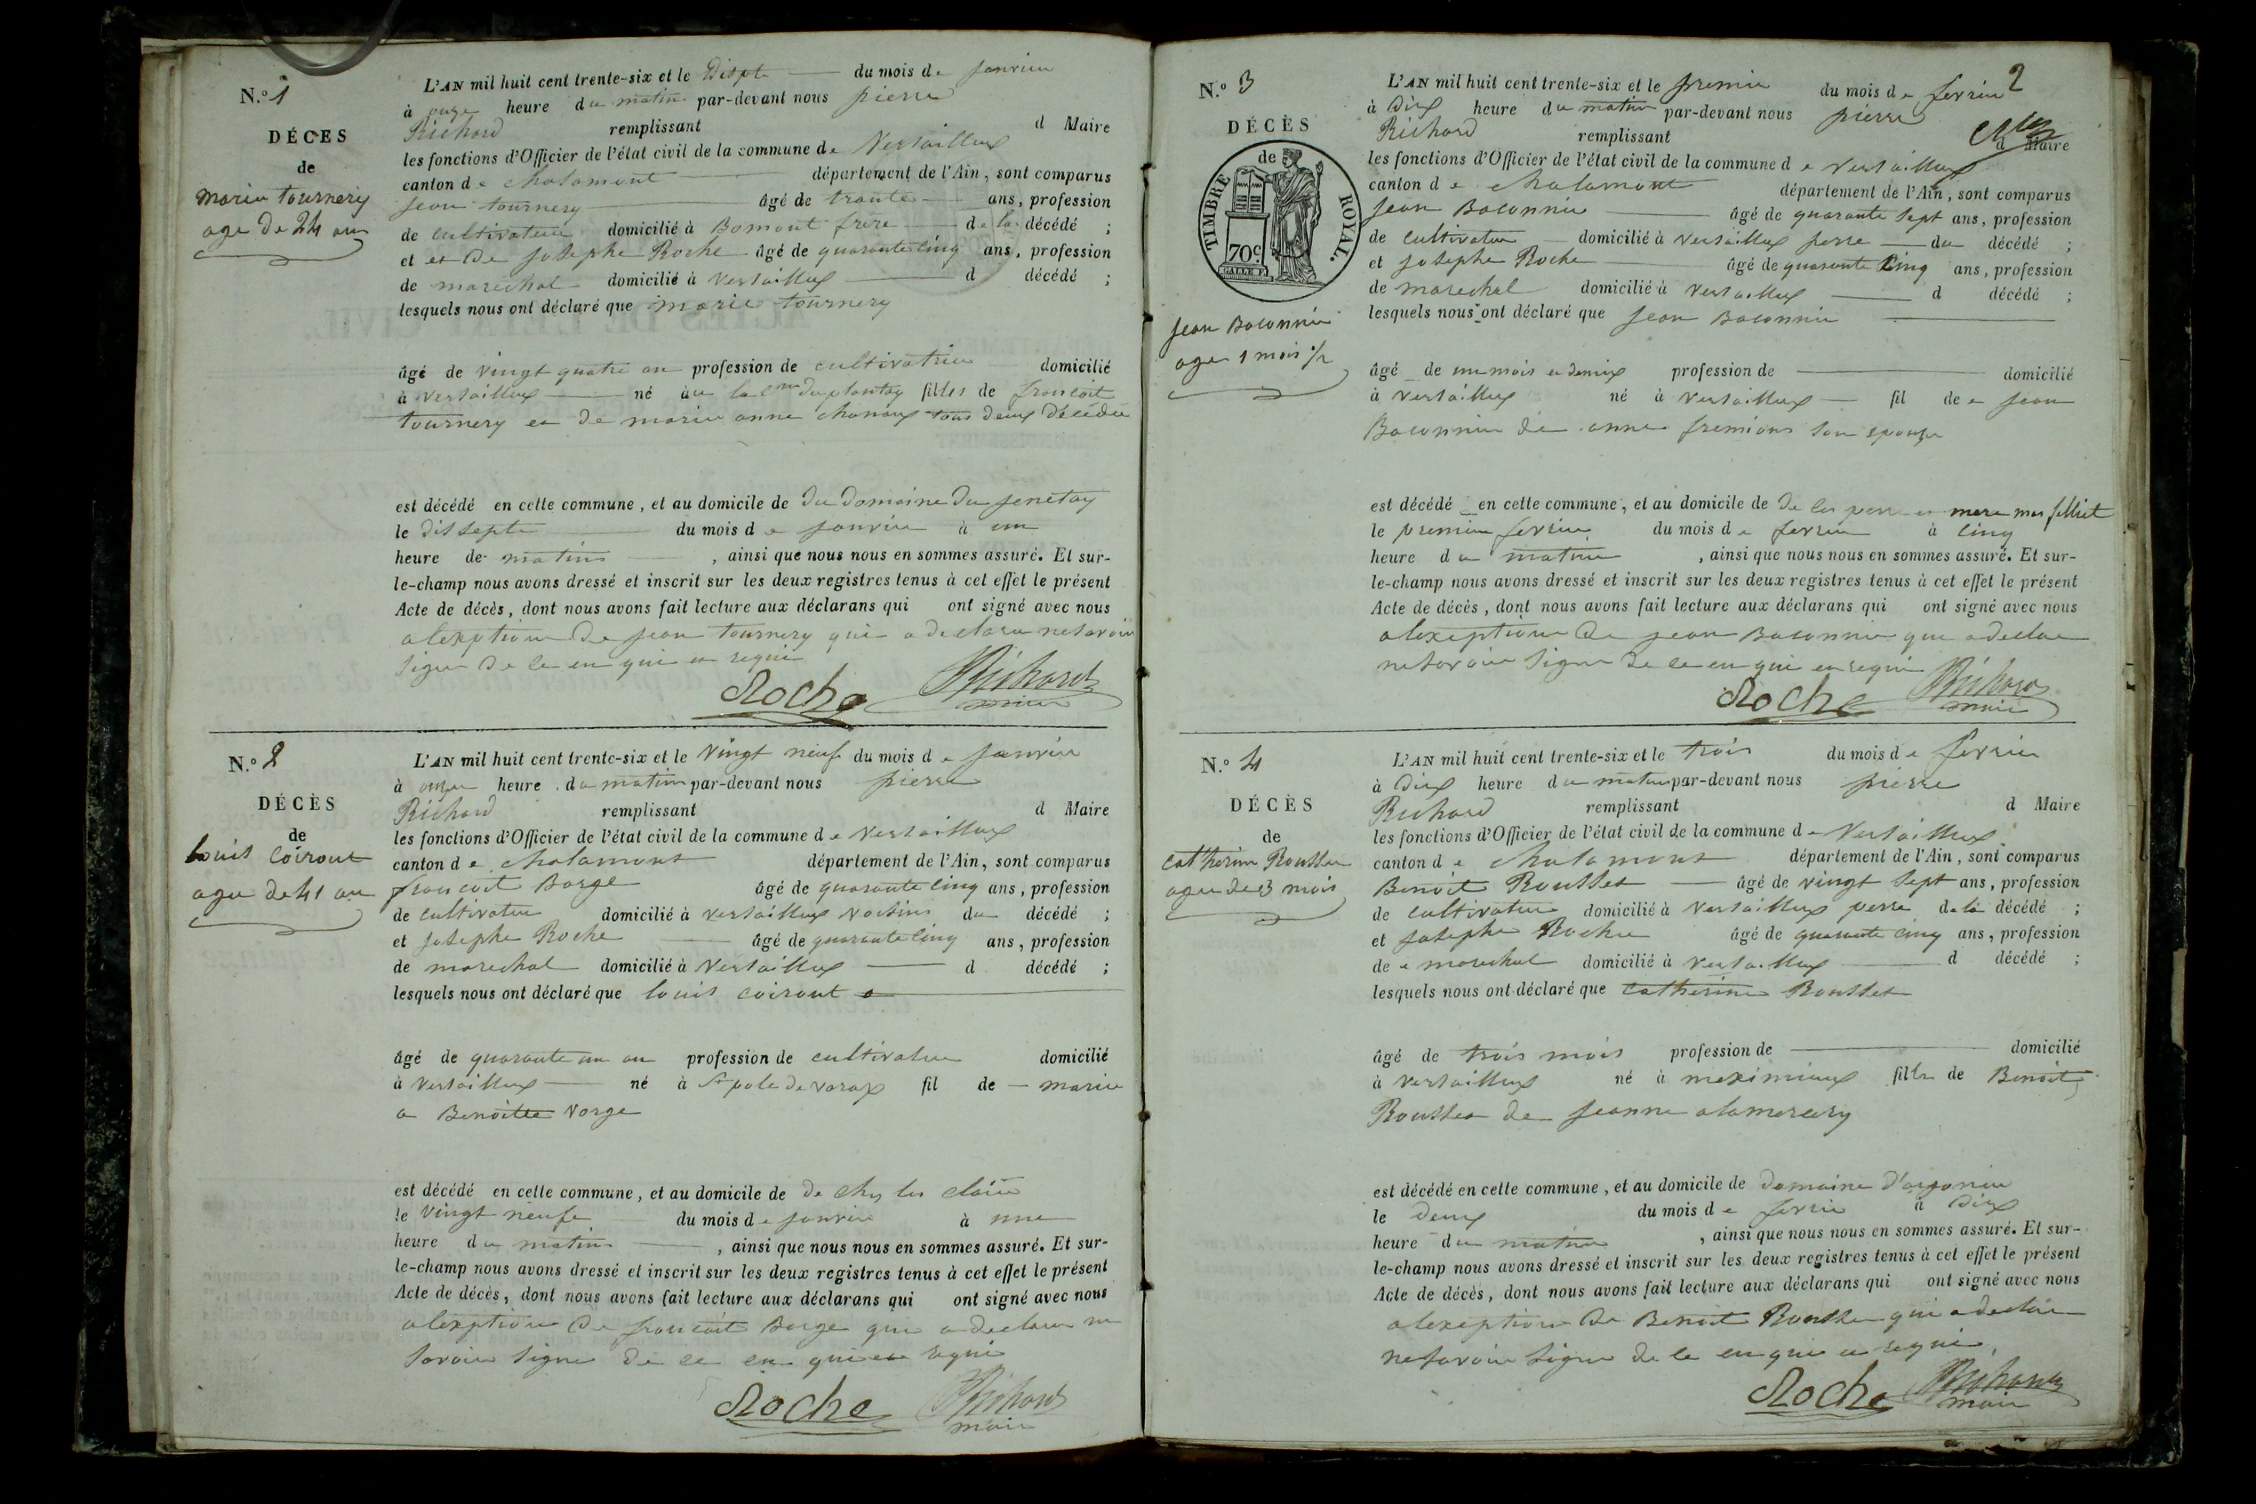 N.º 1
DÉCÈS
de
marie tournery
age de 24 ans
L'AN mil huit cent trente-six et le Dispt du mois de janvier
à onze heure du matin par-devant nous pierre
Richard remplissant d Maire
les fonctions d'Officier de l'état civil de la commune de Versailleux
canton de chalamont département de l'Ain, sont comparus
jean tournery âgé de trante ans, profession
de cultivateur domicilié à Bomont frere de la décédé ;
et et de josephe Roche âgé de quarante cinq ans, profession
de marechal domicilié à versailleux d décédé ;
lesquels nous ont déclaré que marie tournery
âgé de vingt quatre an profession de cultivatrice domicilié
à versailleux né au la cne du plantay filles de francoit
tournery et de marie anne chanoux tous deux décédée
est décédé en cette commune, et au domicile de du domaine du jenetay
le dissepte du mois de janvier à un
heure de matin , ainsi que nous nous en sommes assuré. Et sur-
le-champ nous avons dressé et inscrit sur les deux registres tenus à cet effet le présent
Acte de décès, dont nous avons fait lecture aux déclarans qui ont signé avec nous
alexption de jean tournery qui a declare ne savoir
signer de ce en qui en requi
Roche Richard
maire
N.º 2
DÉCÈS
de
Louis Coiront
age de 41 an
L'AN mil huit cent trente-six et le vingt neuf du mois de janvier
à onze heure du matin par-devant nous pierre
Richard remplissant d Maire
les fonctions d'Officier de l'état civil de la commune de Versailleux
canton de chalamont département de l'Ain, sont comparus
francoit Borge âgé de quarante cinq ans, profession
de cultivateur domicilié à versailleux voisins du décédé ;
et josephe Roche âgé de quarante cinq ans, profession
de marechal domicilié à Versailleux d décédé ;
lesquels nous ont déclaré que louis coiront
âgé de quarante un an profession de cultivateur domicilié
à versailleux né à St pole de varax fil de marie
a Benoitte vorge
est décédé en cette commune, et au domicile de de chez les claire
le vingt neufe du mois de janvier à une
heure du matin , ainsi que nous nous en sommes assuré. Et sur-
le-champ nous avons dressé et inscrit sur les deux registres tenus à cet effet le présent
Acte de décès, dont nous avons fait lecture aux déclarans qui ont signé avec nous
alexption de francoit Borge qui a declare ne
savoir signe de ce en qui en requi
Roche Richard
maire
2
N.º 3
DÉCÈS
de
TIMBRE ROYAL.
70c.
jean Baconnier
age 1 mois 1/2
L'AN mil huit cent trente-six et le premier du mois de fevrier
à Dix heure du matin par-devant nous pierre
Richard remplissant d Maire
les fonctions d'Officier de l'état civil de la commune de versailleux
canton de chalamont département de l'Ain, sont comparus
Jean Baconnier âgé de quarante sept ans, profession
de cultivateur domicilié à versailleux perre du décédé ;
et josephe Roche âgé de quarante cinq ans, profession
de marechal domicilié à versailleux d décédé ;
lesquels nous ont déclaré que jean Baconnier
âgé de un mois et demix profession de domicilié
à versailleux né à versailleux fil de jean
Baconnier de anne fremions son epouze
est décédé en cette commune, et au domicile de de les perre et mere
le premier fevrier du mois de fevrier à cinq
heure du matin , ainsi que nous nous en sommes assuré. Et sur-
le-champ nous avons dressé et inscrit sur les deux registres tenus à cet effet le présent
Acte de décès, dont nous avons fait lecture aux déclarans qui ont signé avec nous
alexeption de jean Baconnier qui a declare
ne savoir signe de ce en qui en requi
Roche Richard
maire
N.º 4
DÉCÈS
de
catherine Rousset
age de 3 mois
L'AN mil huit cent trente-six et le trois du mois de fevrier
à Dix heure du matin par-devant nous pierre
Richard remplissant d Maire
les fonctions d'Officier de l'état civil de la commune de Versailleux
canton de chalamont département de l'Ain, sont comparus
Benoit Rousset âgé de vingt sept ans, profession
de cultivateur domicilié à versailleux perre de la décédé ;
et josephe Roche âgé de quarante cinq ans, profession
de marechal domicilié à versailleux d décédé ;
lesquels nous ont déclaré que catherine Rousset
âgé de trois mois profession de domicilié
à versailleux né à meximieux fille de Benoit
Rousset de jeanne alamercery
est décédé en cette commune, et au domicile de domaine
le deux du mois de fevrier à Dix
heure du matin , ainsi que nous nous en sommes assuré. Et sur-
le-champ nous avons dressé et inscrit sur les deux registres tenus à cet effet le présent
Acte de décès, dont nous avons fait lecture aux déclarans qui ont signé avec nous
alexeption de Benoit Rousset qui a declare
ne savoir signe de ce en qui en requi
Roche Richard
maire